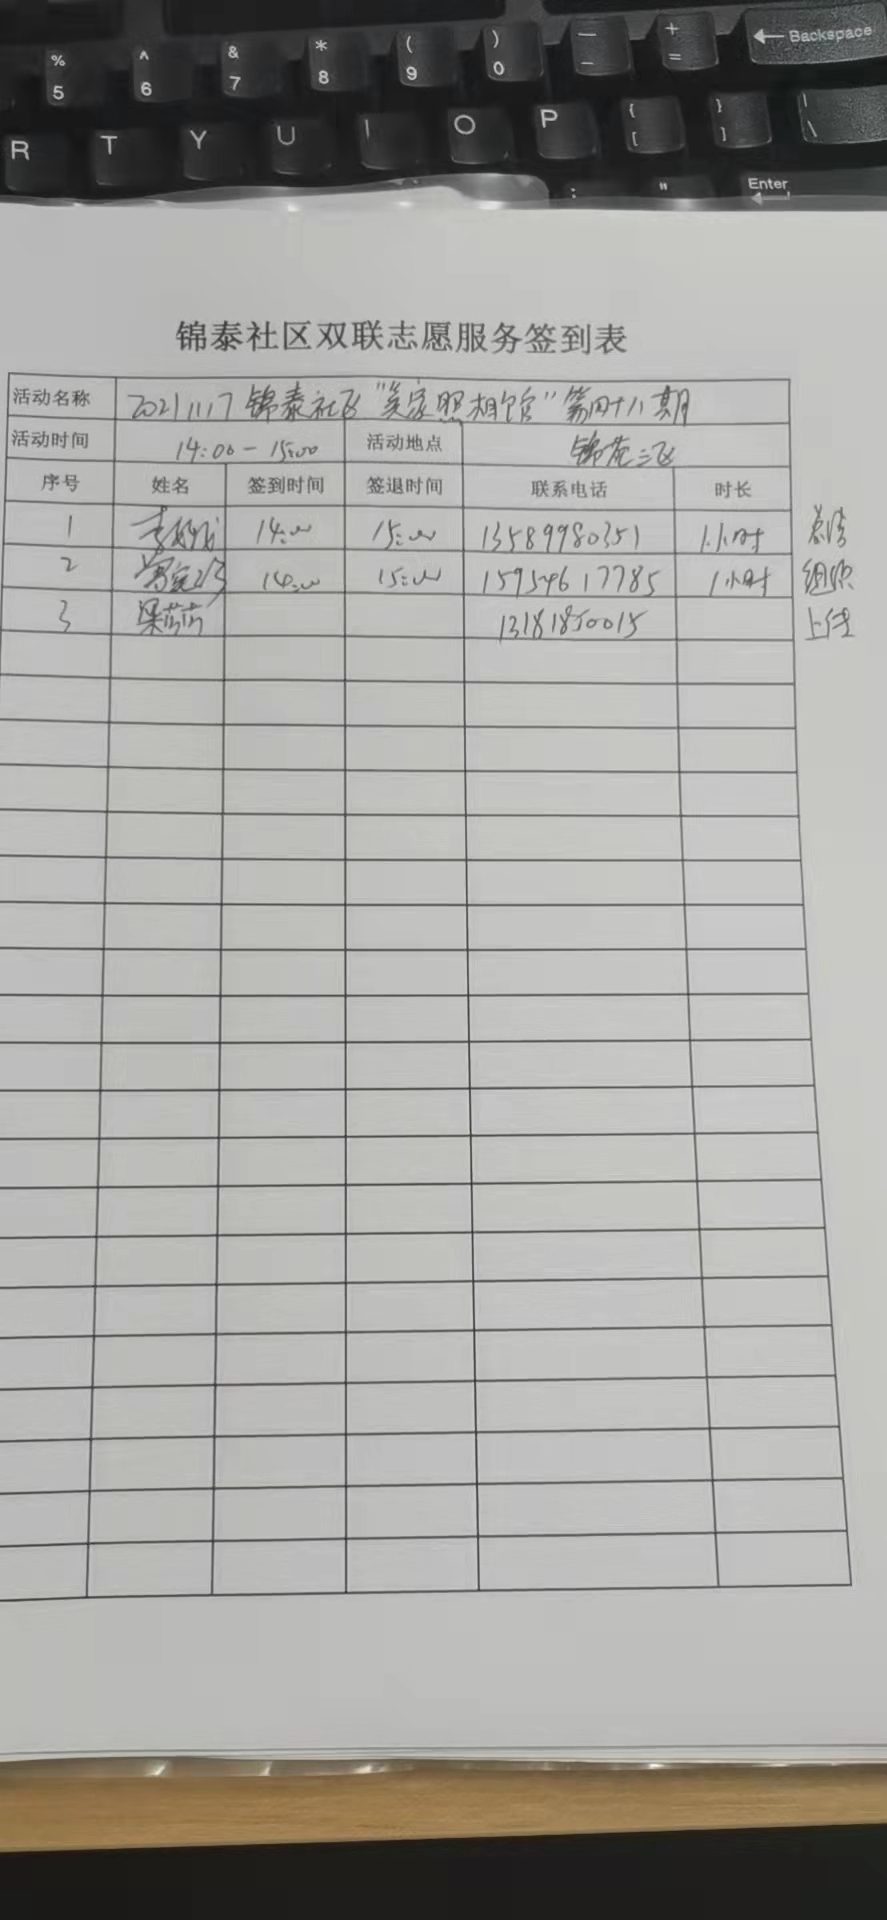 % ^ & * ( ) — + ← Backspace
5 6 7 8 9 0 - =
R T Y U I O P { [ } ] | \
: " Enter
锦泰社区双联志愿服务签到表
活动名称 20211117 锦泰社区"美家照相馆"第四十八期
活动时间 14:00-15:00 活动地点 锦苑三区
序号 姓名 签到时间 签退时间 联系电话 时长
1 李 14:00 15:00 13589980351 1小时
2 14:00 15:00 15954617785 1小时 组织
3 梁莎莎 13181850015 上传